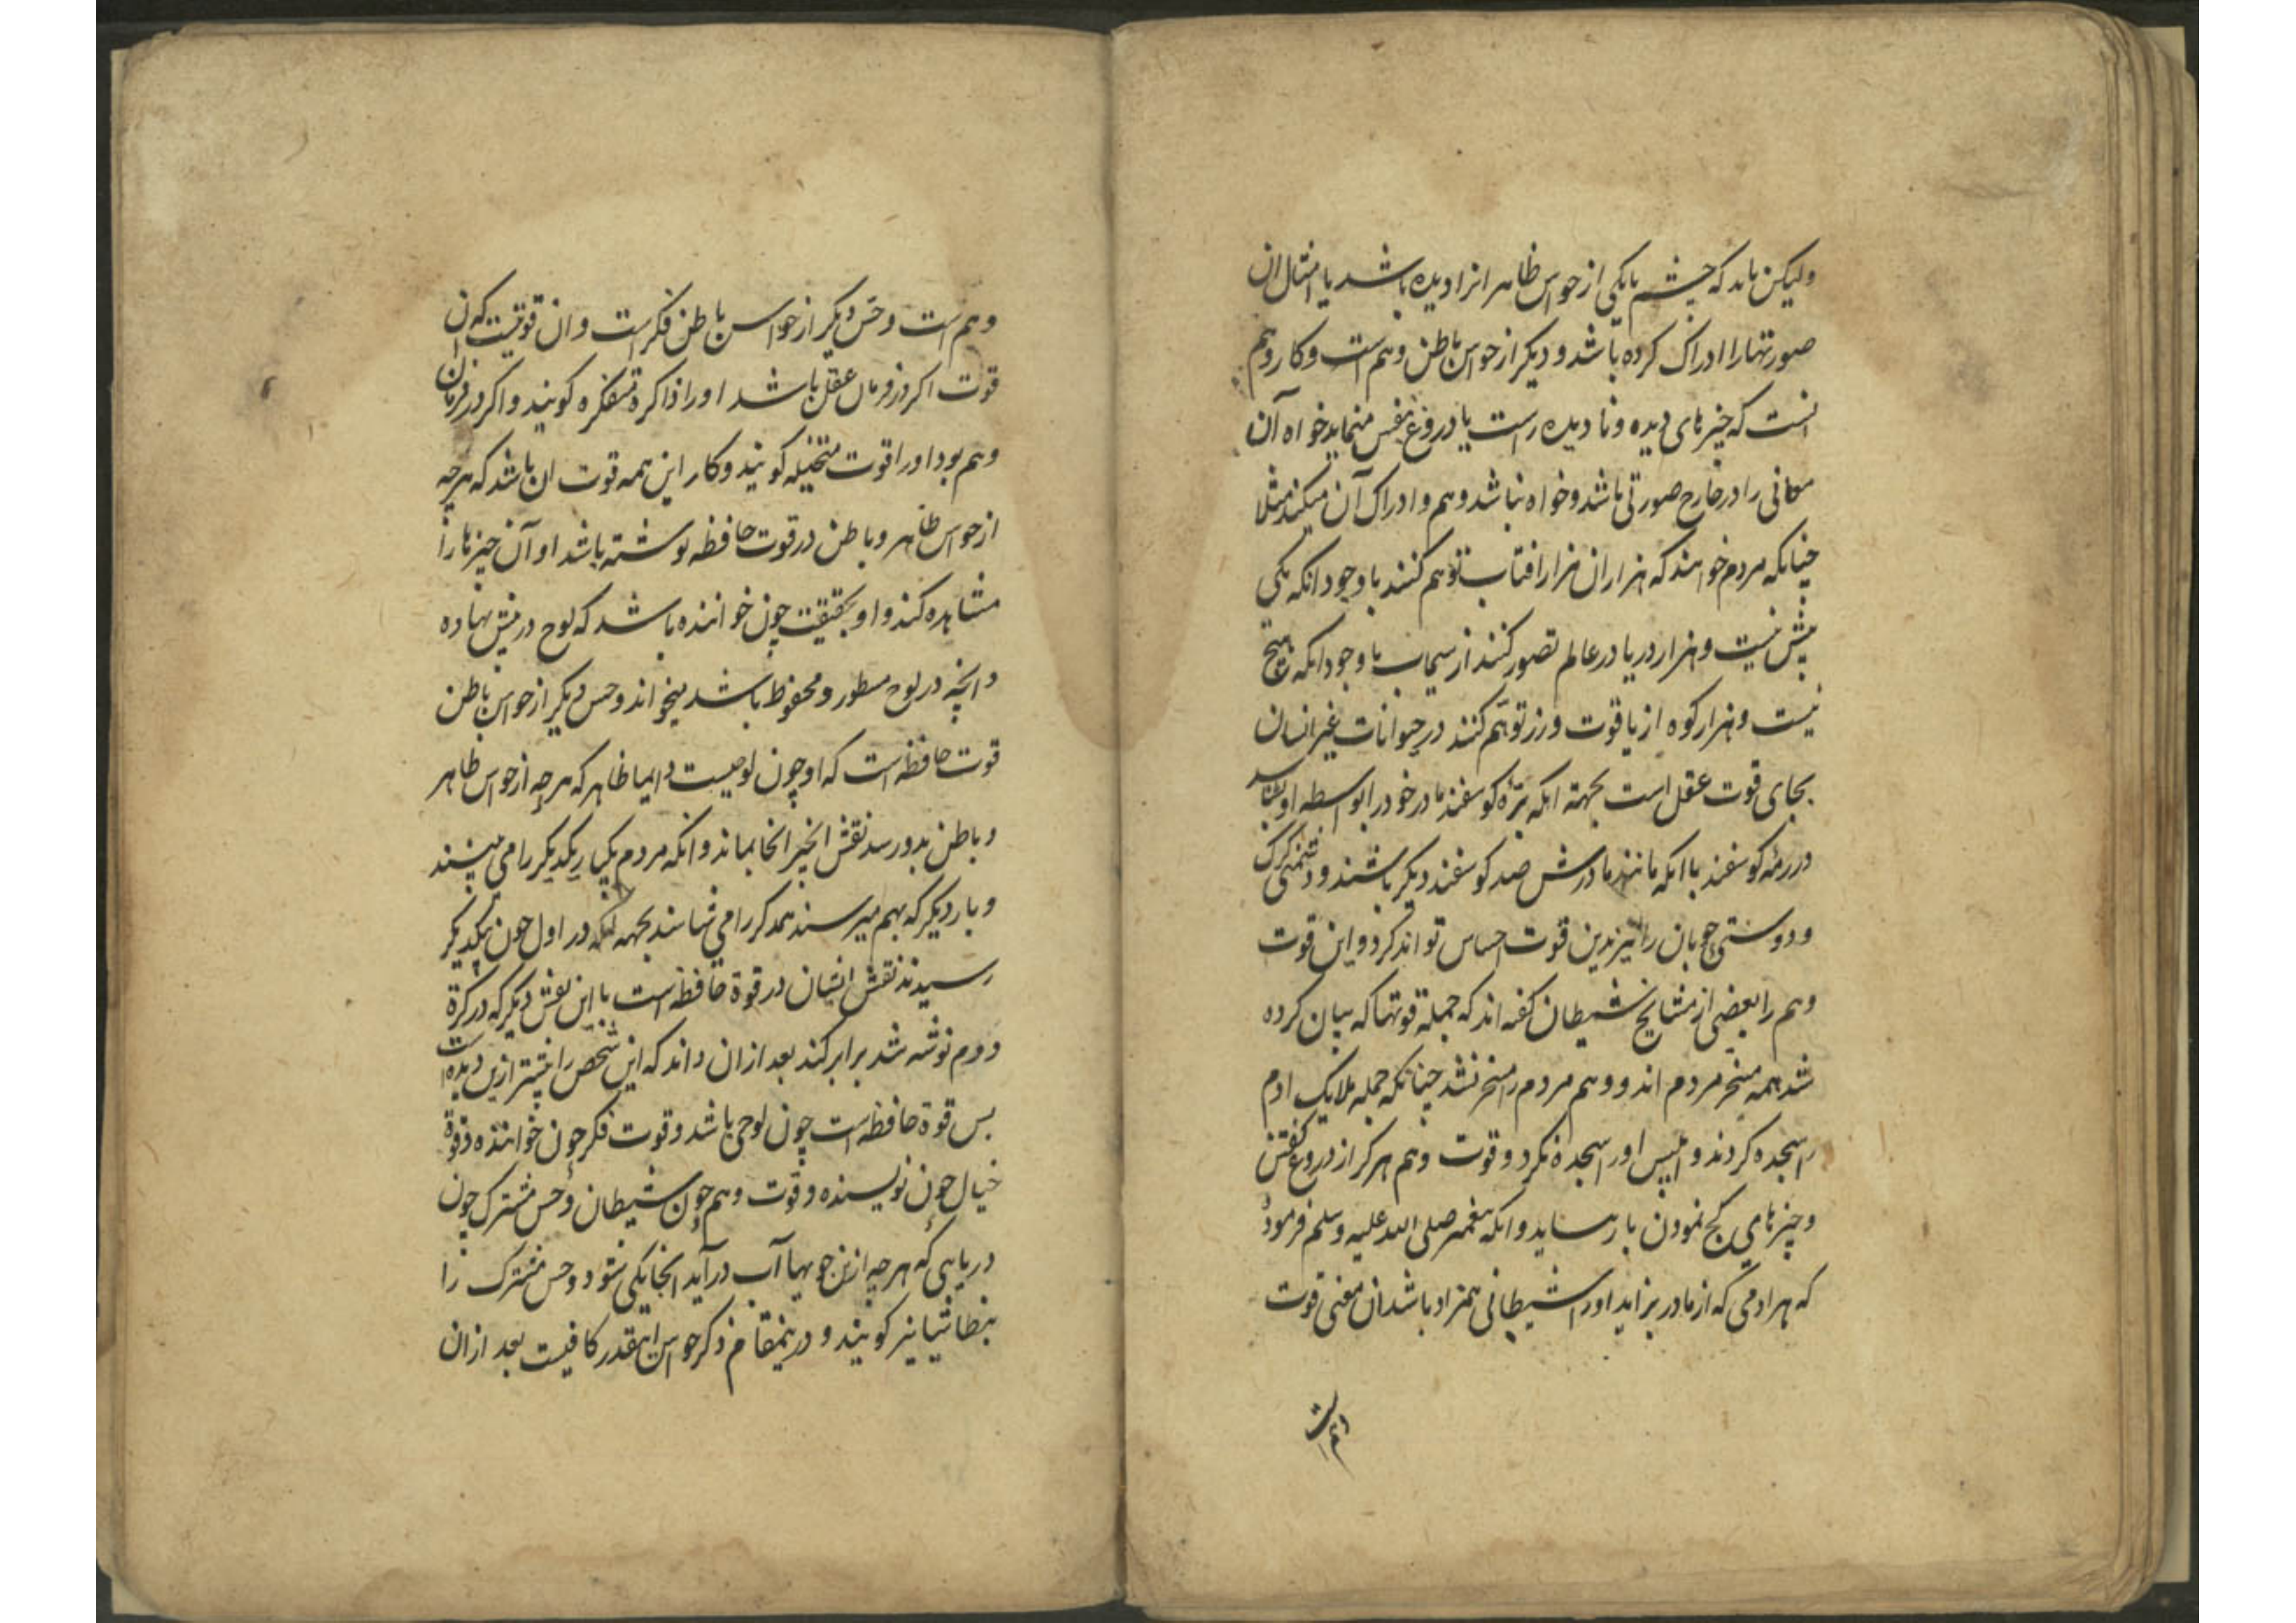 ولیکن باید که چشم یا یکی از حواس ظاهر انرا دیده باشد یا امثال ان
صورتهارا ادراک کرده باشد و دیگر از حواس باطن وهم است و کار وهم
انست که چیزهای دیده و نا دیده راست یا دروغ بنفس مینماید خواه آن
معانی را در خارج صورتی باشد و خواه نباشد وهم و ادراک آن میکند مثلا
چنانکه مردم خواهند که هزاران هزار افتاب توهم کنند با وجود انکه یکی
بیش نیست و هزار دریا در عالم تصور کنند از سیماب با وجود انکه هیچ
نیست و هزار کوه از یاقوت و زر توهم کنند در حیوانات غیر انسان
بجای قوت عقل است بجهته انکه برّه کوسفند مادر خود را بواسطه او بشناسد
در رمهٔ کوسفند با انکه مانند مادرش صد کوسفند دیگر باشند و دشمنی کرک
و دوستی چوبان را نیز بدین قوت احساس تواند کرد و این قوت
وهم را بعضی از مشایخ شیطان کفته اند که جمله قوتها که بیان کرده
شد همه مسخر مردم اند و وهم مردم را مسخر نشد چنانکه جمله ملایک ادم
را سجده کردند و ابلیس او را سجده نکرد و قوت وهم هرکز از دروغ کفتن
و چیزهای کج نمودن باز نیاید و انکه پیغمبر صلی الله علیه وسلم فرمود
که هر ادمی که از مادر بزاید او را شیطانی همزاد باشد ان معنی قوت
وهم است
وهم است و حس دیگر از حواس باطن فکر است و ان قوتیست که ان
قوت اکر در فرمان عقل باشد او را ذاکره و متفکره کویند و اکر در فرمان
وهم بود او را قوت متخیله کویند و کار این همه قوت ان باشد که هرچه
از حواس ظاهر و باطن در قوت حافظه نوشته باشد او آن چیزها را
مشاهده کند و او بحقیقت چون خواننده باشد که لوح در پیش نهاده
و انچه در لوح مسطور و محفوظ باشد میخواند و حس دیگر از حواس باطن
قوت حافظه است که او چون لوحیست دایما ظاهر که هرچه از حواس ظاهر
و باطن بدو رسد نقش انچیز انجا بماند و انکه مردم یکبار یکدیکر را می بینند
و بار دیگر که بهم میرسند همدکر را می شناسند بجهه انکه در اول چون بیکدیکر
رسیدند نقش ایشان در قوة حافظه است با این نقش دیگر که در کرة
دوم نوشته شد برابر کند بعد از ان داند که این شخص را پیشتر ازین دیده است
پس قوة حافظه است چون لوحی باشد و قوت فکر چون خواننده و قوة
خیال چون نویسنده و قوت وهم چون شیطان و حس مشترک چون
دریایی که هرچه ازین جویها آب درآید انجا یکی شود و حس مشترک را
بنطاشیا نیز کویند و درینمقام ذکر حواس اینقدر کافیست بعد از ان